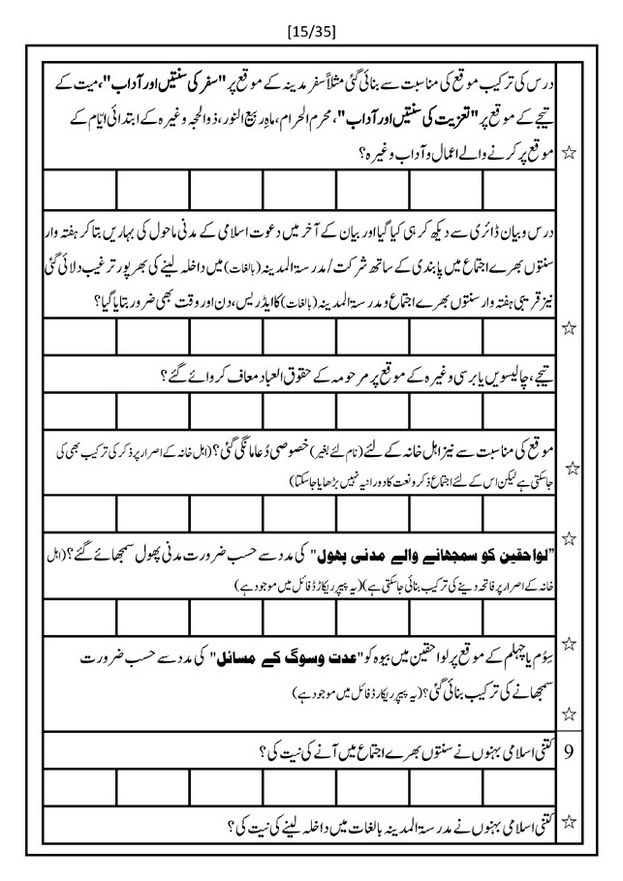 [15/35]
درس کی ترکیب موقع کی مناسبت سے بنائی گئی مثلاً سفر مدینہ کے موقع پر "سفر کی سنتیں اور آداب"، میت کے
تیجے کے موقع پر "تعزیت کی سنتیں اور آداب"، محرم الحرام، ماہِ ربیع النور، ذوالحجہ وغیرہ کے ابتدائی ایّام کے
موقع پر کرنے والے اعمال و آداب وغیرہ؟
☆
درس و بیان ڈائری سے دیکھ کر ہی کیا گیا اور بیان کے آخر میں دعوت اسلامی کے مدنی ماحول کی بہاریں بتا کر ہفتہ وار
سنتوں بھرے اجتماع میں پابندی کے ساتھ شرکت/مدرسۃ المدینہ (بالغات) میں داخلہ لینے کی بھرپور ترغیب دلائی گئی
نیز قریبی ہفتہ وار سنتوں بھرے اجتماع و مدرسۃ المدینہ (بالغات) کا ایڈریس، دن اور وقت بھی ضرور بتایا گیا؟
☆
تیجے، چالیسویں یا برسی وغیرہ کے موقع پر مرحومہ کے حقوق العباد معاف کروائے گئے؟
موقع کی مناسبت سے نیز اہل خانہ کے لئے (نام لئے بغیر) خصوصی دُعا مانگی گئی؟ (اہل خانہ کے اصرار پر ذکر کی ترکیب بھی کی
☆
جاسکتی ہے لیکن اس کے لئے اجتماع ذکر و نعت کا دورانیہ نہیں بڑھایا جاسکتا)
☆
"لواحقین کو سمجھانے والے مدنی پھول" کی مدد سے حسب ضرورت مدنی پھول سمجھائے گئے؟ (اہل
خانہ کے اصرار پر فاتحہ دینے کی ترکیب بنائی جاسکتی ہے) (یہ پیپر ریکارڈ فائل میں موجود ہے)
☆
سِوُم یا چہلم کے موقع پر لواحقین میں بیوہ کو "عدت وسوگ کے مسائل" کی مدد سے حسب ضرورت
سمجھانے کی ترکیب بنائی گئی؟ (یہ پیپر ریکارڈ فائل میں موجود ہے)
☆
9 کتنی اسلامی بہنوں نے سنتوں بھرے اجتماع میں آنے کی نیت کی؟
☆ کتنی اسلامی بہنوں نے مدرسۃ المدینہ بالغات میں داخلہ لینے کی نیت کی؟